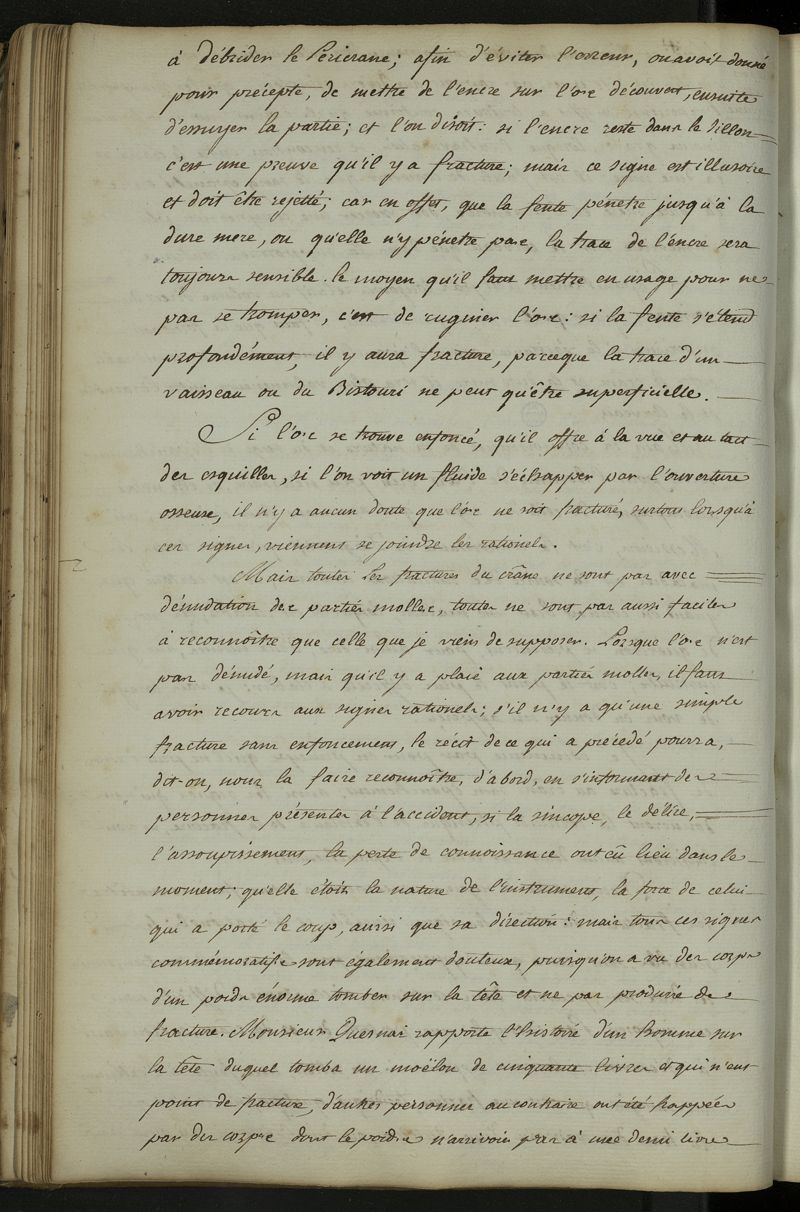 à débrider le Péricrane; afin d'éviter l'erreur, on avoit donné
pour précepte, de mettre de l'encre sur l'os découvert, ensuite
d'essuyer la partie; et l'on disoit: si l'encre reste dans le sillon
c'est une preuve qu'il y a fracture; mais ce signe est illusoire
et doit être rejetté; car en effet, que la fente pénétre jusqu'à la
dure mere, ou qu'elle n'y pénétre pas, la trace de l'encre sera
toujours sensible. le moyen qu'il faut mettre en usage pour ne
pas se tromper, c'est de ruginer l'os: si la fente s'étend
profondément, il y aura fracture, parceque la trace d'un
vaisseau ou du Bistouri ne peut qu'être superficielle.
Si l'os se trouve enfoncé, qu'il offre à la vue et au tact
des esquilles, si l'on voit un fluide s'échapper par l'ouverture
osseuse, il n'y a aucun doute que l'os ne soit fracturé, surtout lorsqu'à
ces signes, viennent se joindre les rationels.
Mais toutes les fractures du crâne ne sont pas avec
dénudation des parties molles, toutes ne sont pas aussi faciles
à reconnoître que celle que je viens de supposer. Lorsque l'os n'est
pas dénudé, mais qu'il y a plaie aux parties molles, il faut
avoir recours aux signes rationels; s'il n'y a qu'une simple
fracture sans enfoncement, le récit de ce qui a précédé pourra,
dit-on, nous la faire reconnoître, d'abord, en s'informant des
personnes présentes à l'accident, si la sincope, le délire,
l'assoupissement, la perte de connoissance ont eû lieu dans le
moment; qu'elle étoit la nature de l'instrument, la force de celui
qui a porté le coup, aussi que sa direction: mais tous ces signes
commémoratifs sont également douteux, puisqu'on a vu des corps
d'un poids énorme tomber sur la tête et ne pas produire de
fracture. Monsieur Quesnai rapporte l'histoire d'un homme sur
la tête duquel tomba un moëllon de cinquante livres et qui n'eut
point de fracture, d'autres personnes au contraire ont été frappées
par des corps dont le poids n'arrivoit pas à une demi livre